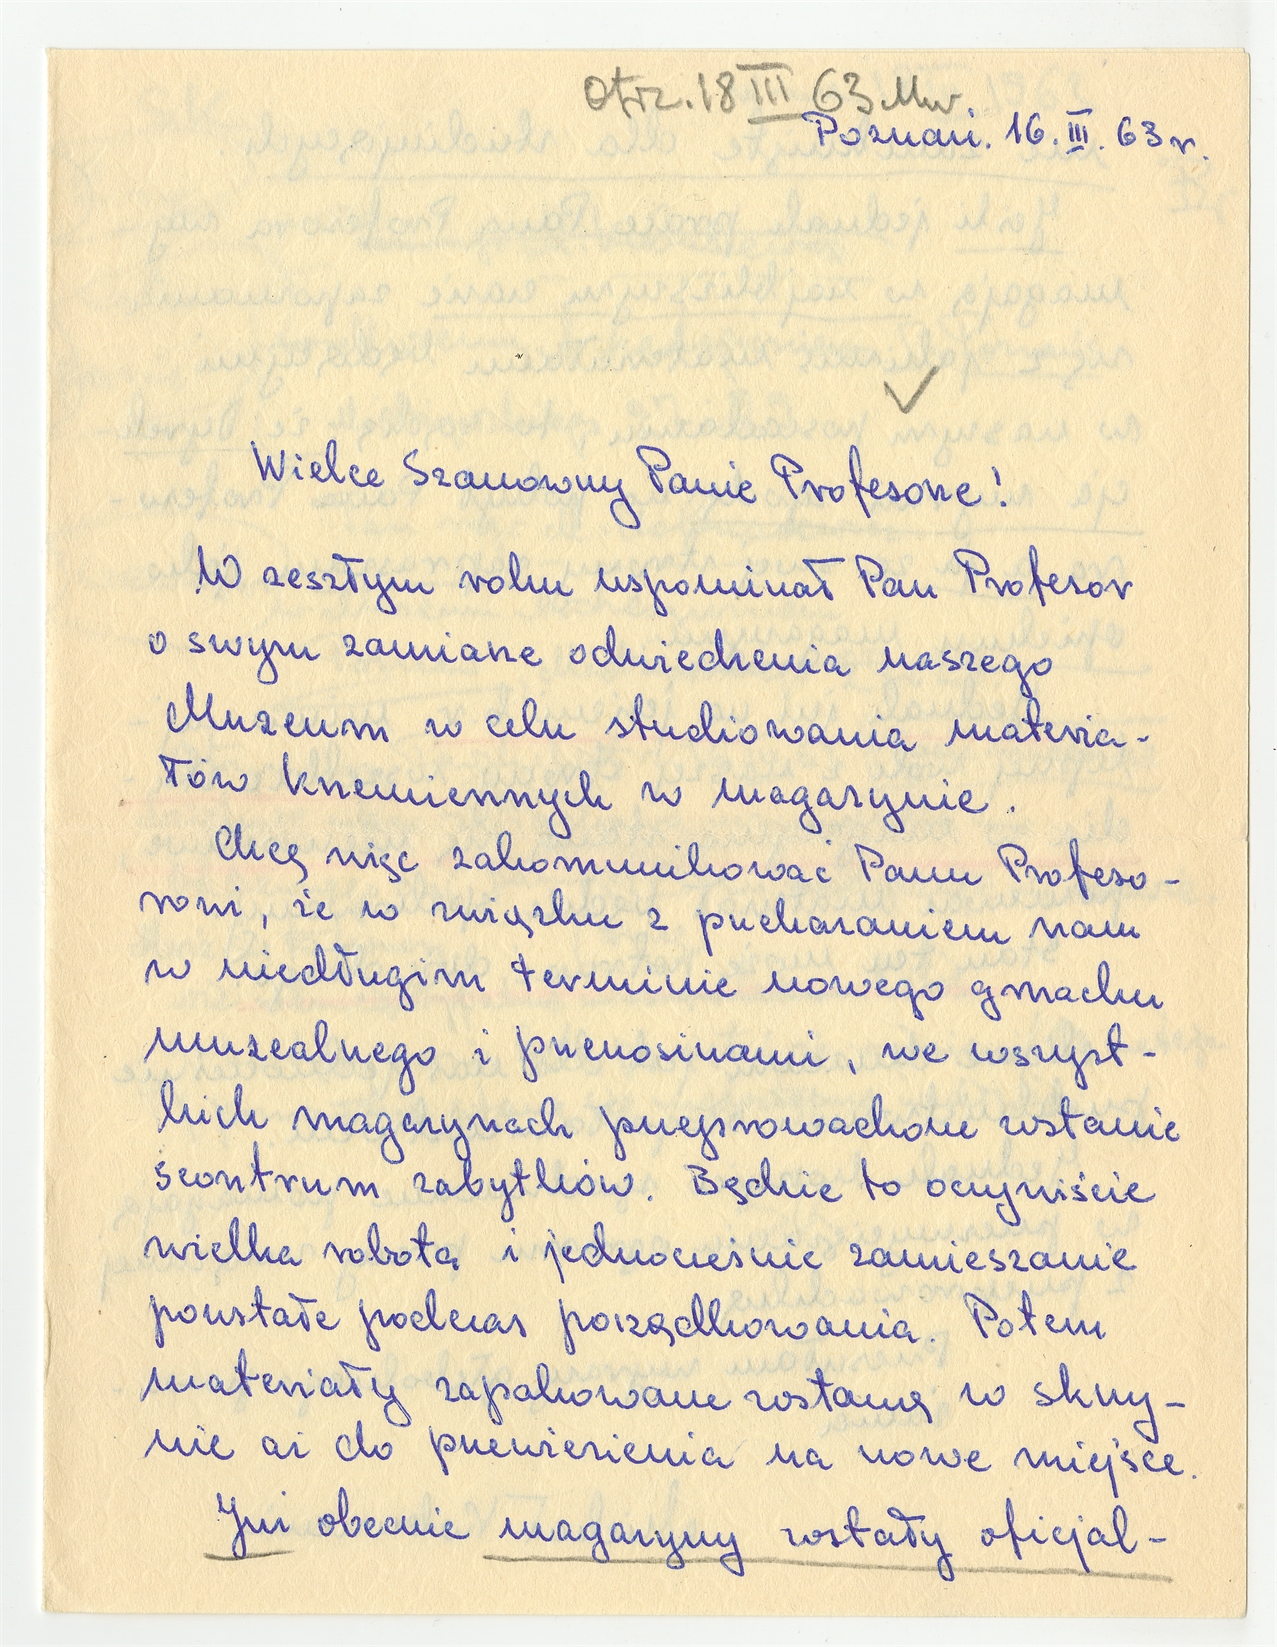 Otrz. 18 III 63 Mw.
Poznań. 16. III. 63 r.
Wielce Szanowny Panie Profesorze!
W zeszłym roku wspominał Pan Profesor
o swym zamiarze odwiedzenia naszego
Muzeum w celu studiowania materia-
łów krzemiennych w magazynie.
Chcę więc zakomunikować Panu Profeso-
rowi, że w związku z przekazaniem nam
w niedługim terminie nowego gmachu
muzealnego i przenosinami, we wszyst-
kich magazynach przeprowadzone zostanie
scontrum zabytków. Będzie to oczywiście
wielka robota i jednocześnie zamieszanie
powstałe podczas porządkowania. Potem
materiały zapakowane zostaną w skrzy-
nie aż do przewiezienia na nowe miejsce.
Już obecnie magazyny zostały oficjal-